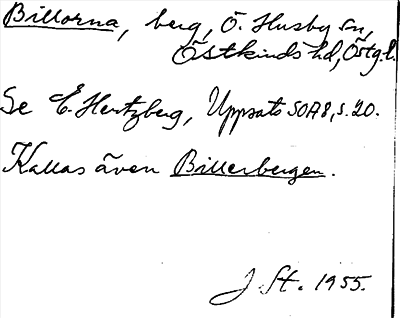 Billorna, berg, Ö. Husby sn,
Östkinds hd, Östg. l.
Se E. Hertzberg, Uppsats SOA8, s. 20.
Kallas även Billerbergen.
J. St. 1955.